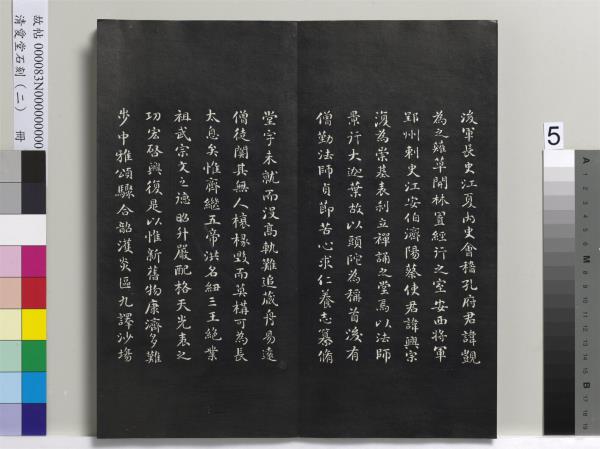 後軍長史江夏內史會稽孔府君諱覬
為之薙草開林置經行之室安西將軍
郢州刺史江安伯濟陽蔡使君諱興宗
復為崇基表剎立禪誦之堂焉以法師
景行大迦葉故以頭陀為稱首後有
僧勤法師貞節苦心求仁養志纂脩
堂宇未就而沒高軌難追藏舟易遠
僧徒闃其無人榱椽毀而莫構可為長
太息矣惟齊繼五帝洪名紐三王絕業
祖武宗文之德昭升嚴配格天光表之
功宏啓興復是以惟新舊物康濟多難
步中雅頌驟合韶濩炎區九譯沙場
故帖 000083N000000000
清愛堂石刻(二) 冊
5
A
1
2
3
4
5
6
M
8
9
10
11
12
13
14
15
B
17
18
19